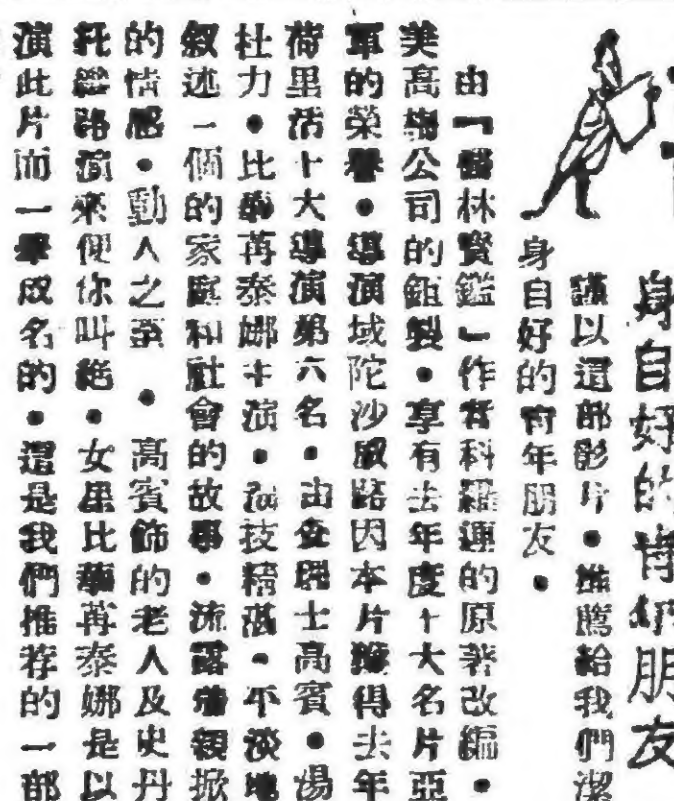 身自好的青年朋友
謹以這部影片・推薦給我們潔
身自好的青年朋友・
由「儒林賢鑑」作者科羅連的原著改編・
美高梅公司的鉅製・享有去年度十大名片亞
軍的榮譽・導演域陀沙威路因本片獲得去年
荷里活十大導演第六名・由查理士高賓・湯
杜力・比華再泰娜主演・演技精湛・平淡地
叙述一個的家庭和社會的故事・流露着親掀
的情感・動人之至・高賓飾的老人及史丹
托路演來使你叫絕・女星比華再泰娜是以
演此片而一舉成名的・這是我們推荐的一部